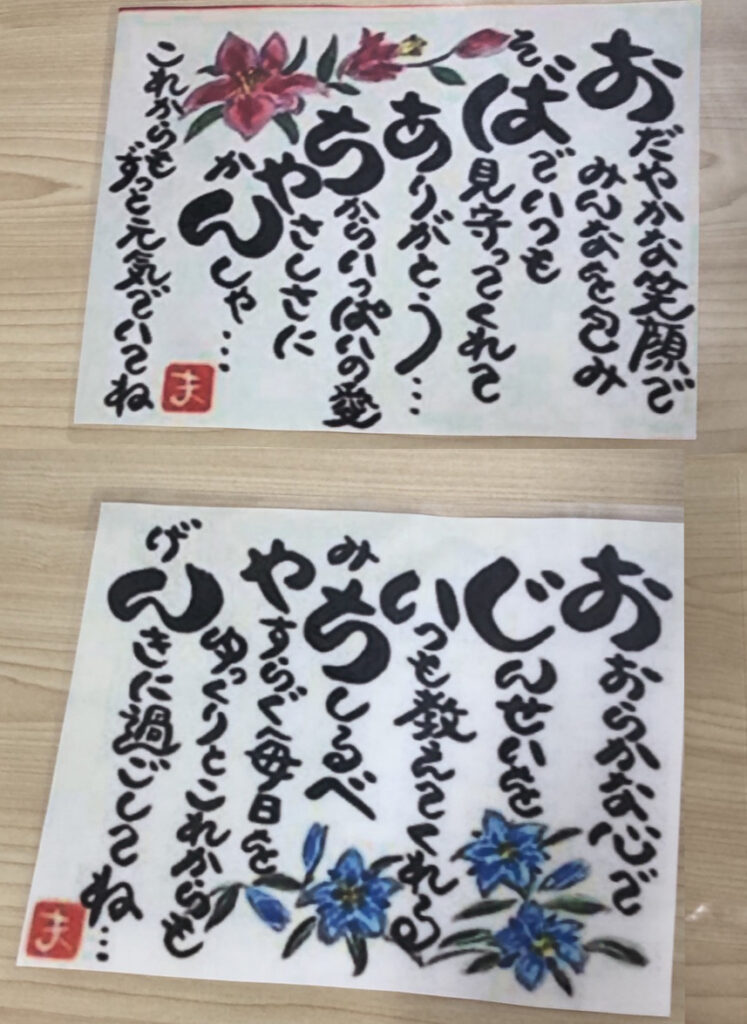 おだやかな笑顔で
みんなを包み
そばでいつも
見守ってくれて
ありがとう…
ちからいっぱいの愛
やさしさに
かんしゃ…
これからも
ずっと元気でいてね
ま
おおらかな心で
じんせいを
いつも教えてくれる
みちしるべ
やすらぐ毎日を
ゆっくりとこれからも
げんきに過ごしてね…
ま